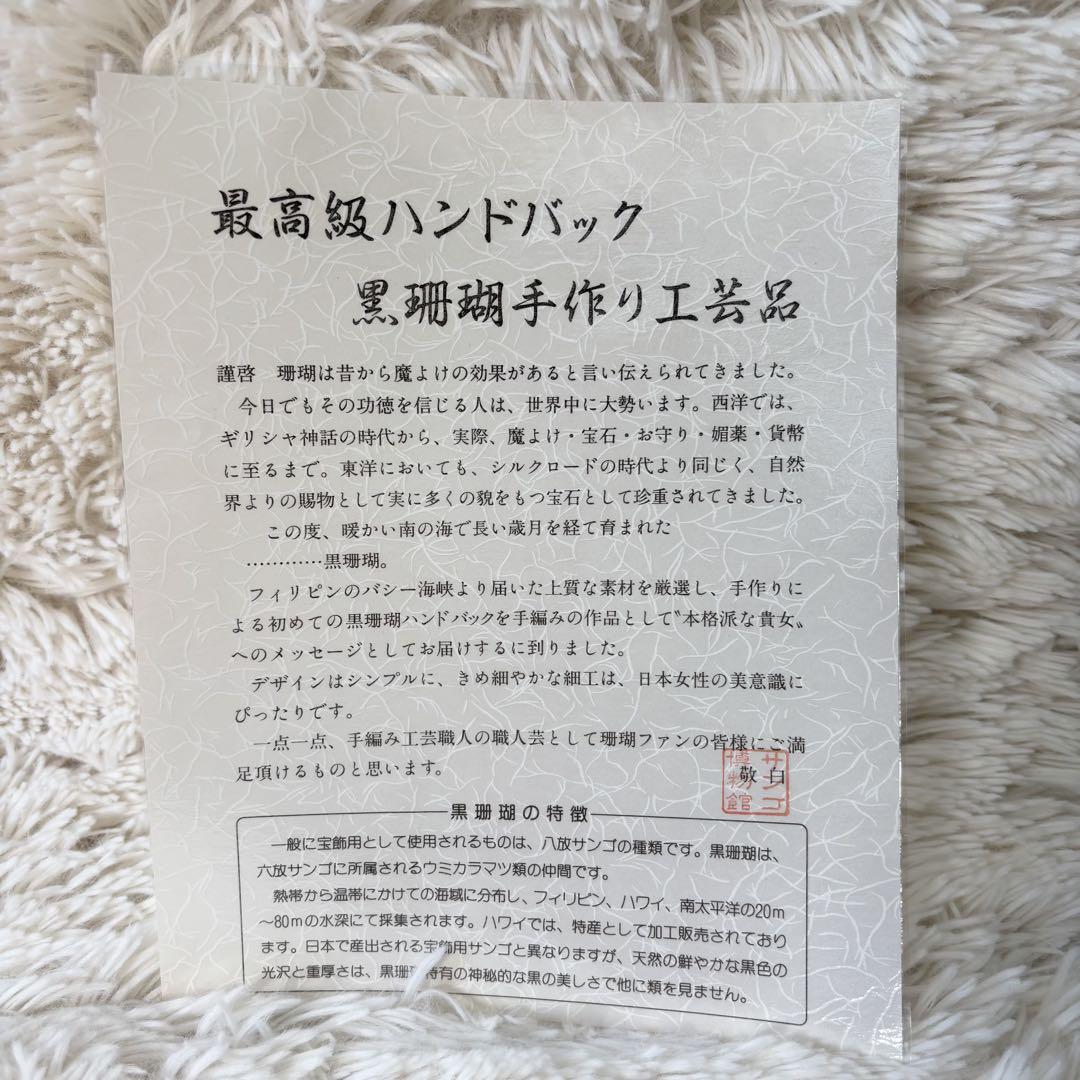 最高級ハンドバック
黒珊瑚手作り工芸品
謹啓　珊瑚は昔から魔よけの効果があると言い伝えられてきました。
今日でもその功徳を信じる人は、世界中に大勢います。西洋では、
ギリシャ神話の時代から、実際、魔よけ・宝石・お守り・媚薬・貨幣
に至るまで。東洋においても、シルクロードの時代より同じく、自然
界よりの賜物として実に多くの貌をもつ宝石として珍重されてきました。
この度、暖かい南の海で長い歳月を経て育まれた
…………黒珊瑚。
フィリピンのバシー海峡より届いた上質な素材を厳選し、手作りに
よる初めての黒珊瑚ハンドバックを手編みの作品として〝本格派な貴女〟
へのメッセージとしてお届けするに到りました。
デザインはシンプルに、きめ細やかな細工は、日本女性の美意識に
ぴったりです。
一点一点、手編み工芸職人の職人芸として珊瑚ファンの皆様にご満
足頂けるものと思います。
敬白
サンゴ
博物館
黒珊瑚の特徴
一般に宝飾用として使用されるものは、八放サンゴの種類です。黒珊瑚は、
六放サンゴに所属されるウミカラマツ類の仲間です。
熱帯から温帯にかけての海域に分布し、フィリピン、ハワイ、南太平洋の20m
～80mの水深にて採集されます。ハワイでは、特産として加工販売されており
ます。日本で産出される宝飾用サンゴと異なりますが、天然の鮮やかな黒色の
光沢と重厚さは、黒珊瑚特有の神秘的な黒の美しさで他に類を見ません。